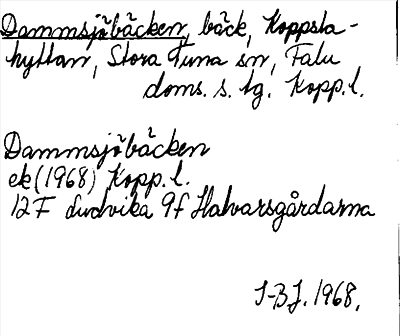 Dammsjöbäcken, bäck, Koppsta-
hyttan, Stora Tuna sn, Falu
doms. s. tg. Kopp. l.
Dammsjöbäcken
ek (1968) Kopp. l.
12 F Ludvika 9f Halvarsgårdarna
I-BJ. 1968.